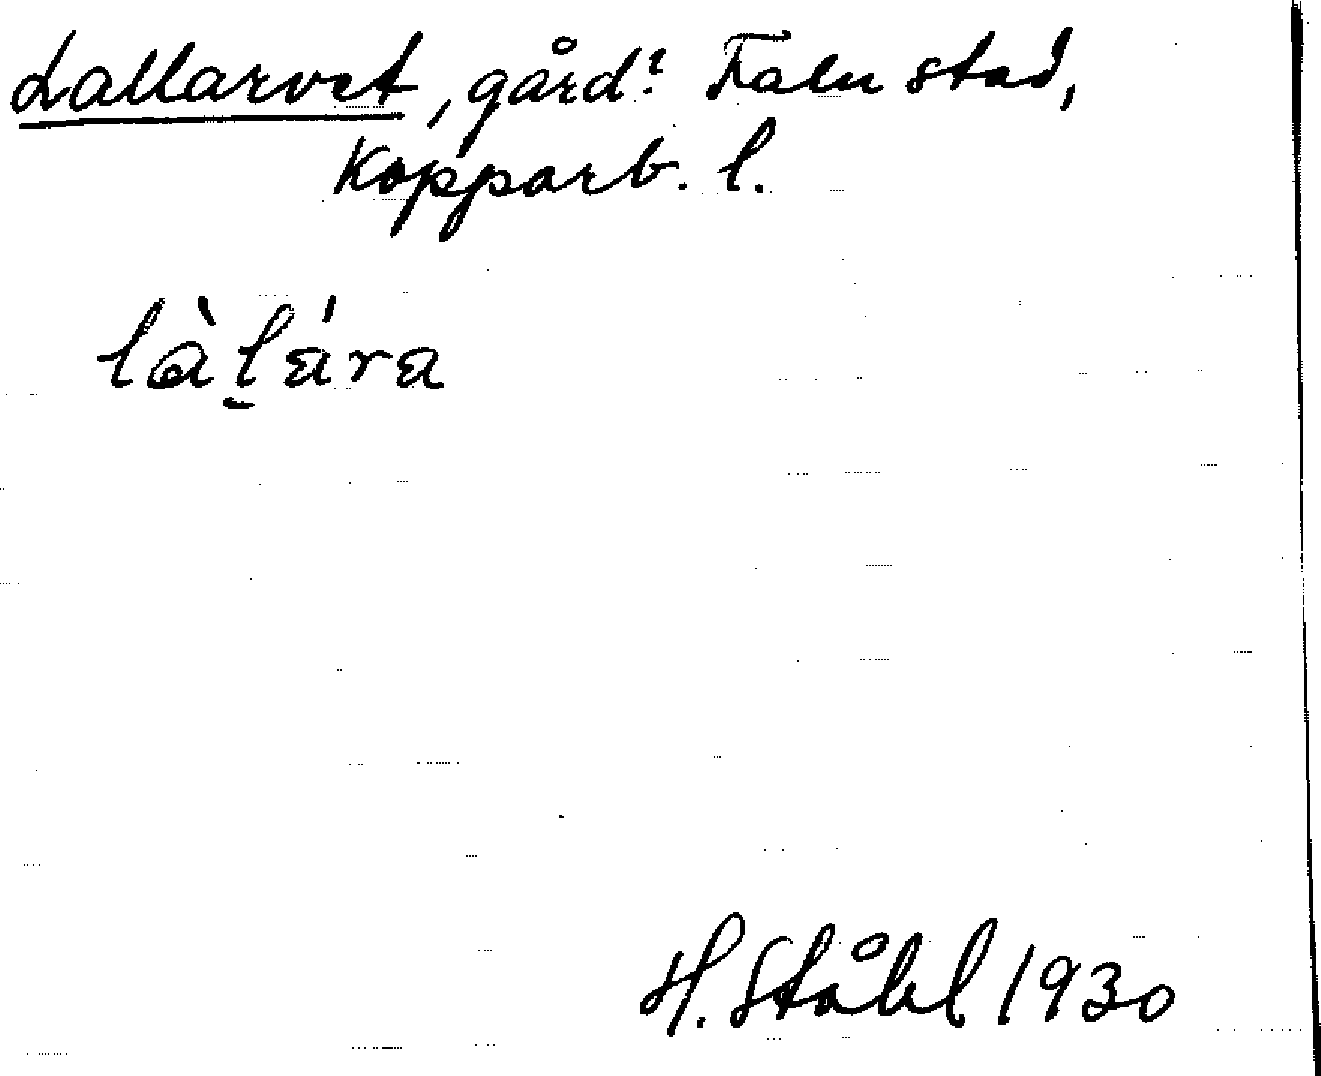 Lallarvet, gård? Falu stad,
Kopparb. l.
làl̠ára
H. Ståhl 1930